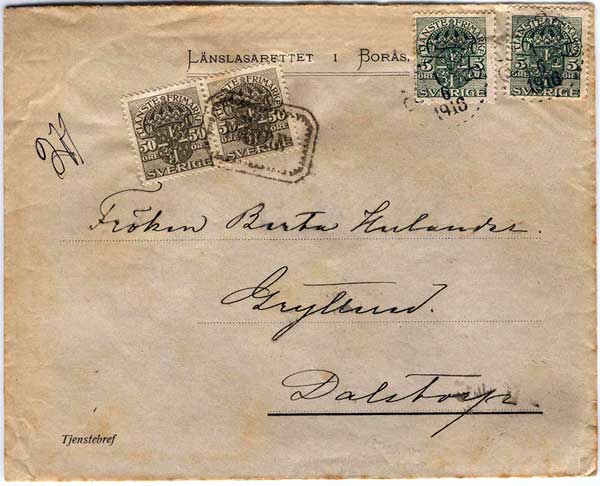 LÄNSLASARETTET I BORÅS.
TJÄNSTE FRIMÄRKE TJÄNSTE FRIMÄRKE
5 5 5 5
ÖRE ÖRE ÖRE ÖRE
SVERIGE SVERIGE
6
1913
TJÄNSTE FRIMÄRKE
50 50 50 50
ÖRE ÖRE ÖRE ÖRE
SVERIGE SVERIGE
Fröken Berta Hulander.
Gryllund.
Dalstorp
Tjenstebref